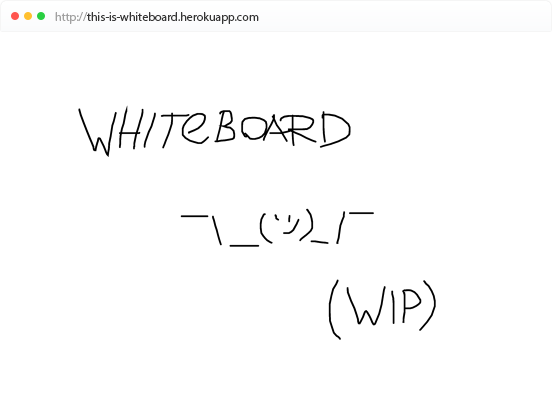 http://this-is-whiteboard.herokuapp.com
WHITEBOARD
¯\_(ツ)_/¯
(WIP)